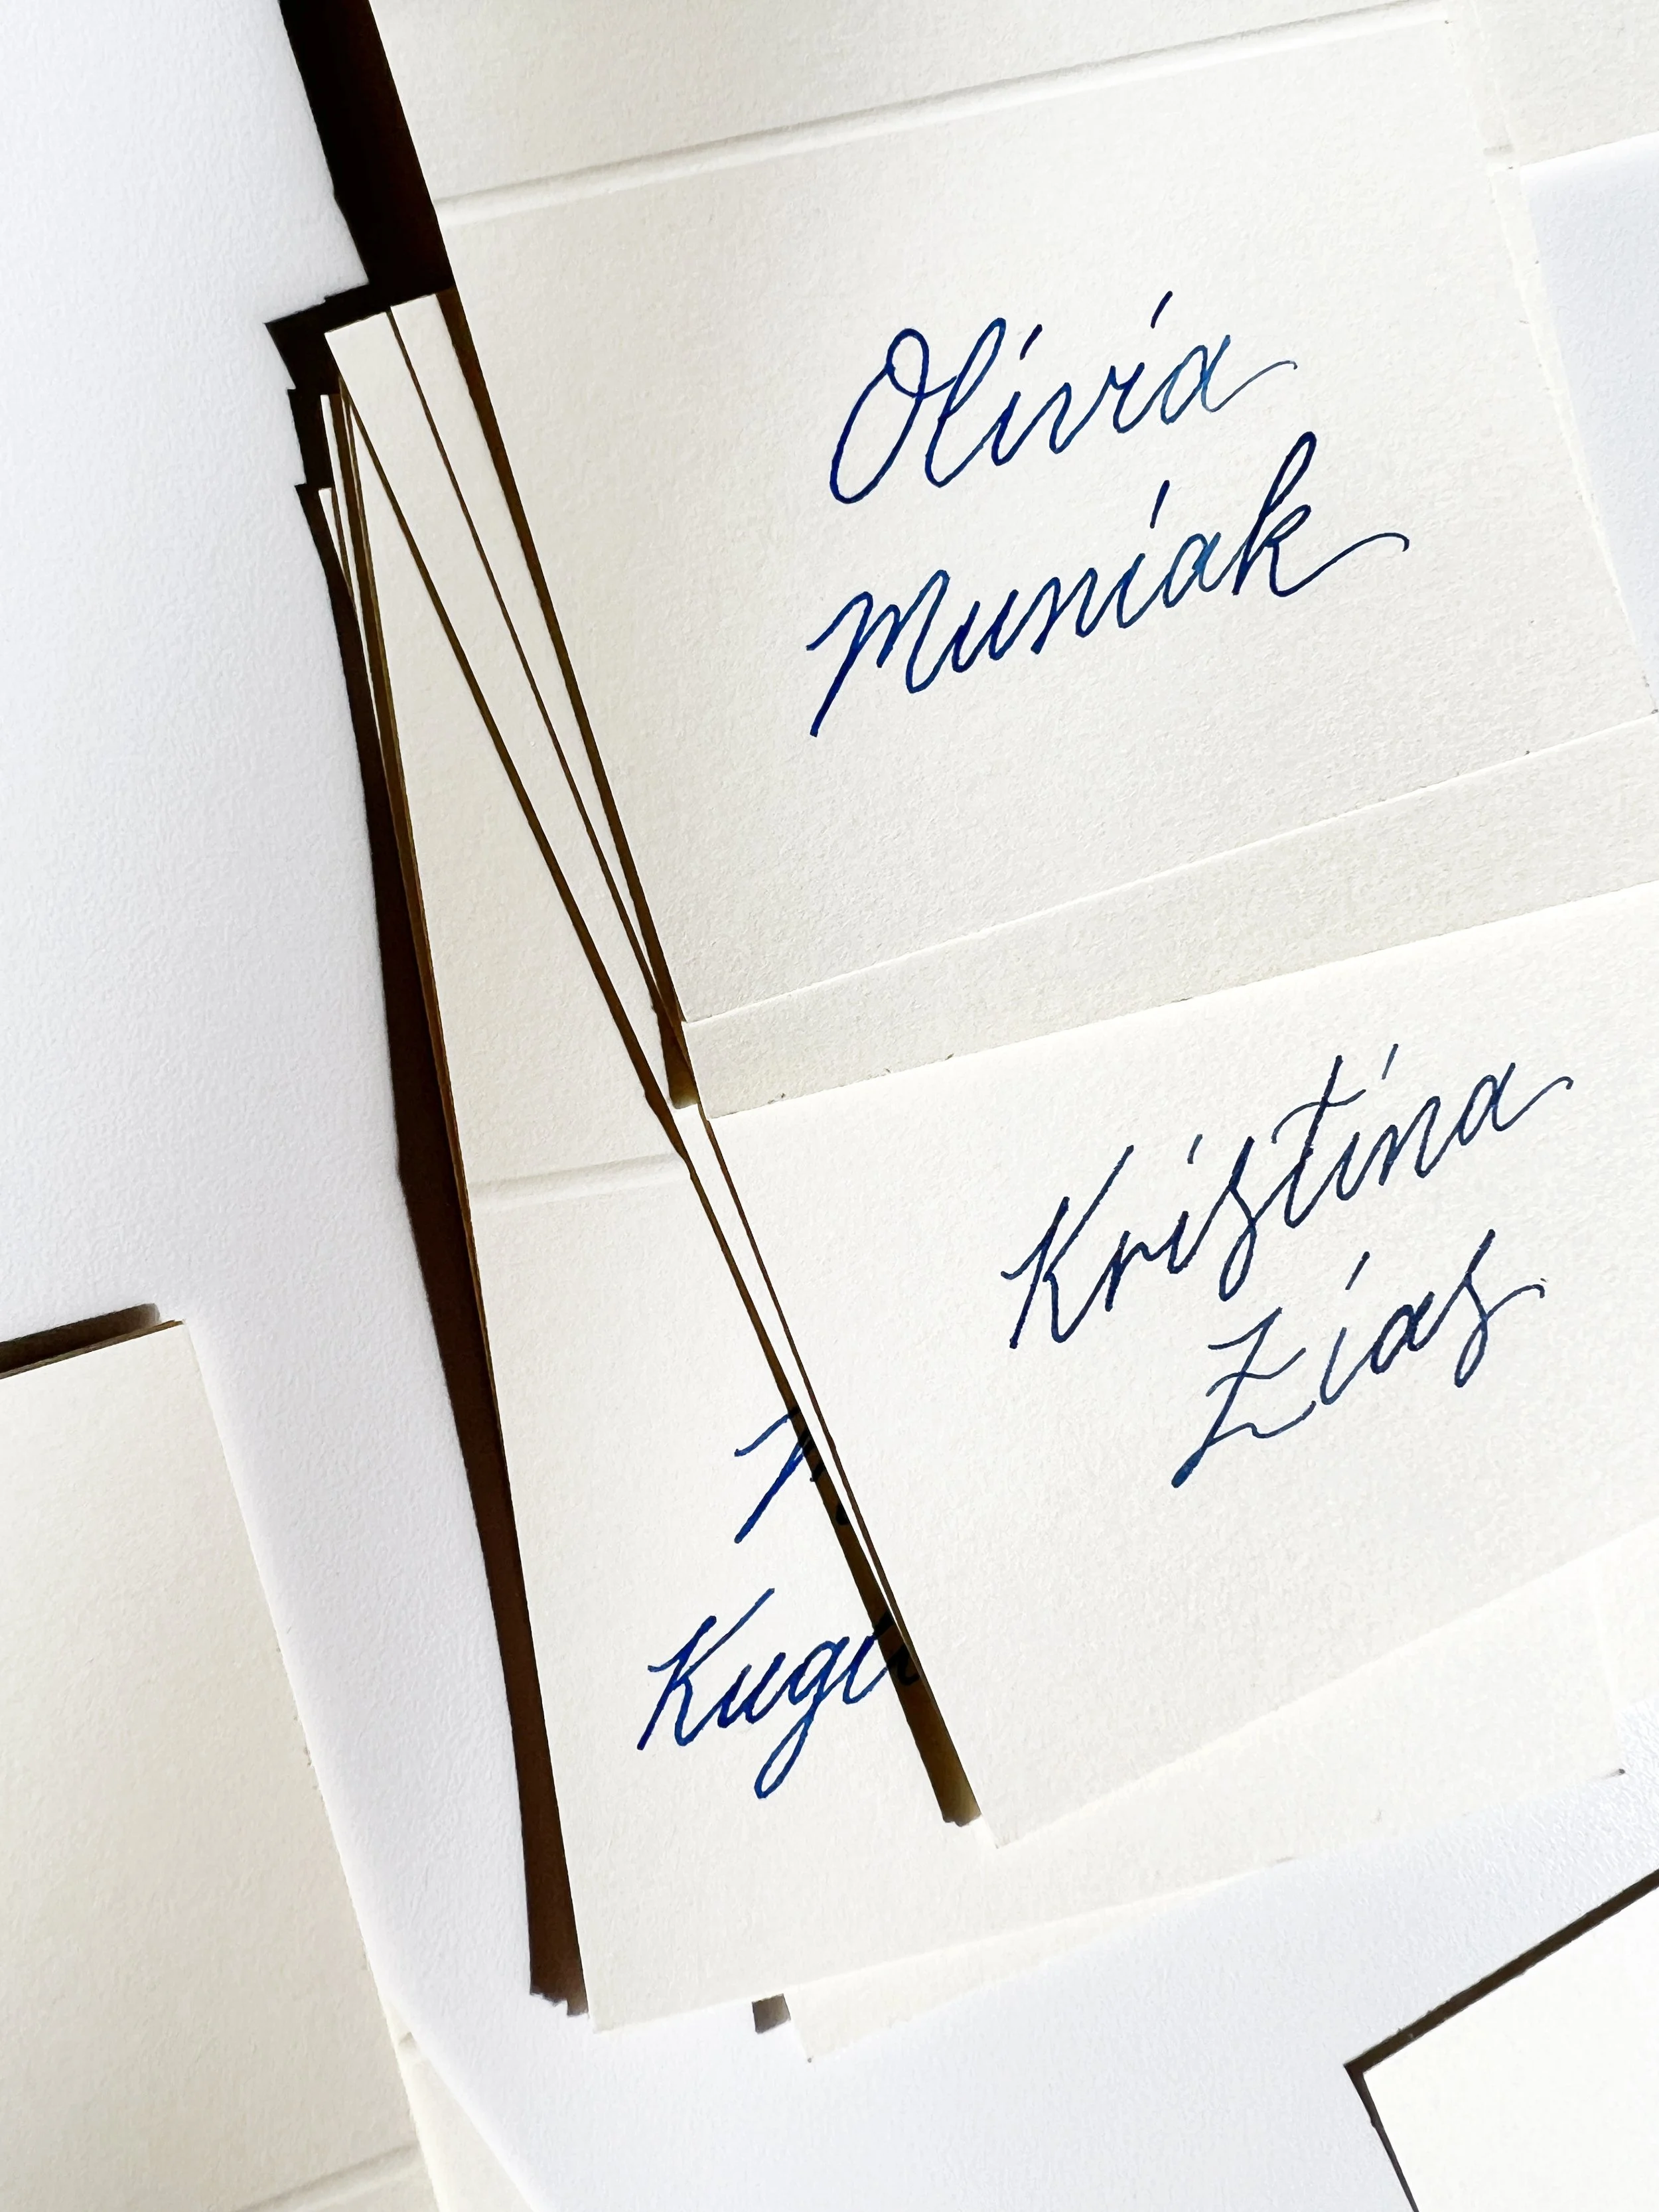 Olivia
Muniak
Kristina
Zias